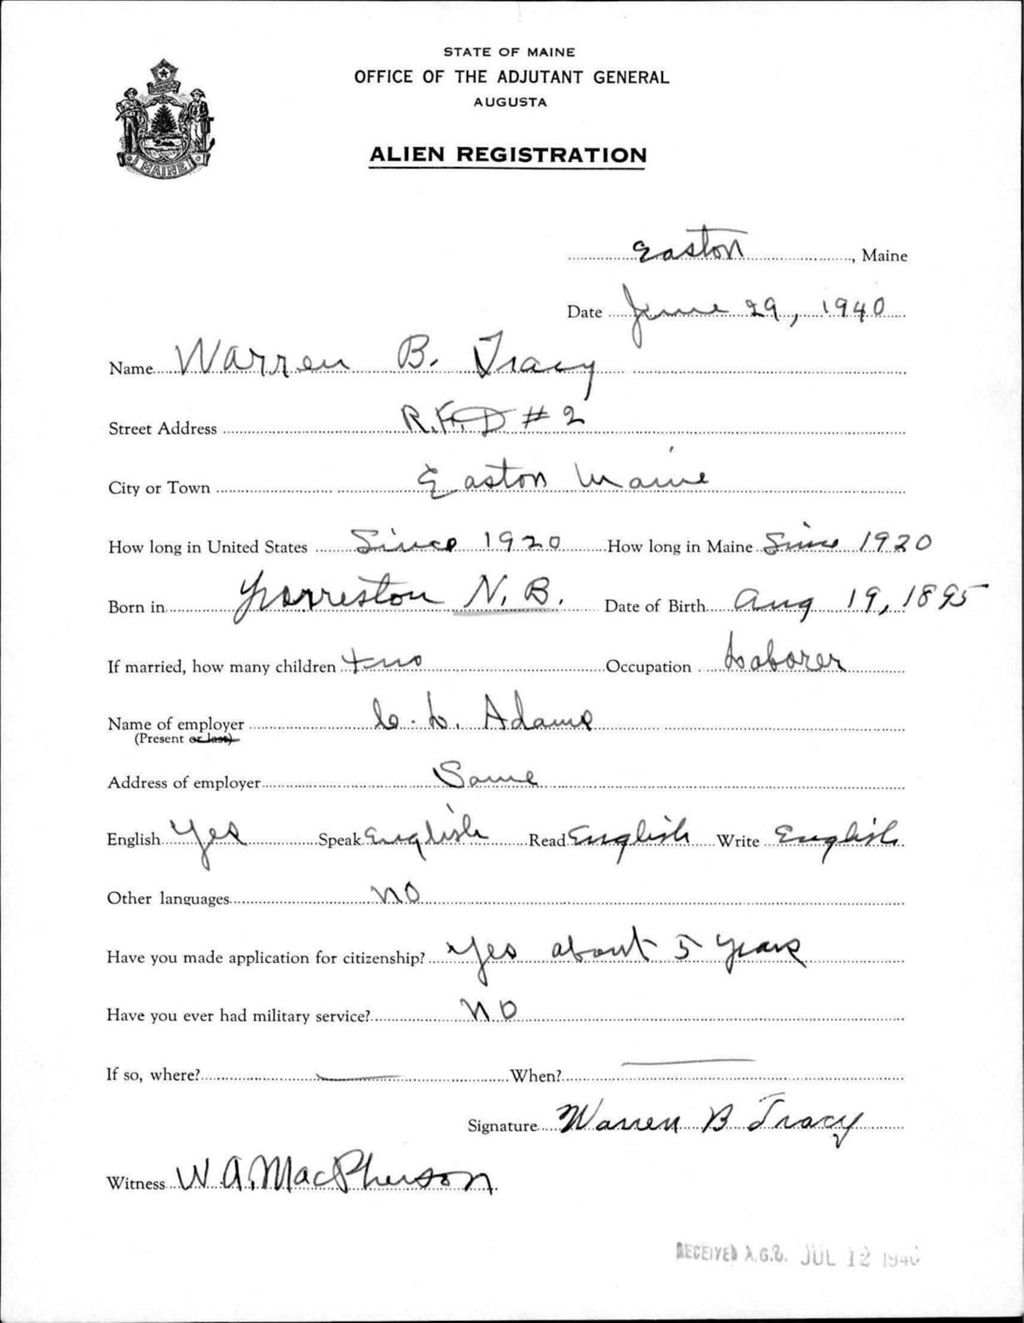 STATE OF MAINE
OFFICE OF THE ADJUTANT GENERAL
AUGUSTA
MAINE
ALIEN REGISTRATION
Easton, Maine
Date June 29, 1940
Name Warren B. Tracy
Street Address R.F.D #2
City or Town Easton Maine
How long in United States Since 1920 How long in Maine Since 1920
Born in N. B. Date of Birth Aug 19, 1895
If married, how many children two Occupation Laborer
Name of employer L. Adams
(Present or last)
Address of employer Same
English Yes Speak English Read English Write English
Other languages no
Have you made application for citizenship? Yes about 5 years
Have you ever had military service? no
If so, where? — When? —
Signature Warren B Tracy
Witness W. A. MacPherson
RECEIVED A.G.O. JUL 12 1940